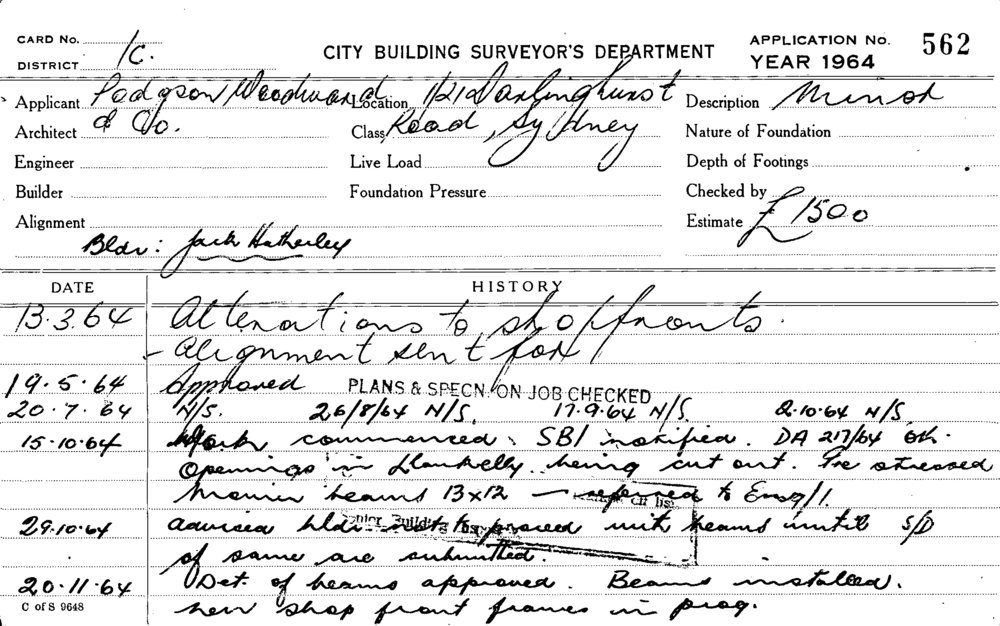 CARD No. 1C.
DISTRICT
CITY BUILDING SURVEYOR'S DEPARTMENT
APPLICATION No. 562
YEAR 1964
Applicant Podgson, Woodward Location 121 Darlinghurst Description Minor
Architect & Co. Class Road, Sydney Nature of Foundation
Engineer Live Load Depth of Footings
Builder Foundation Pressure Checked by
Alignment Estimate £1500
Bldr: Jack Hatherley
DATE HISTORY
13.3.64 Alterations to shopfronts.
- Alignment sent for
19.5.64 Approved PLANS & SPECN. ON JOB CHECKED
20.7.64 N/S. 26/8/64 N/S. 17.9.64 N/S. 2.10.64 N/S
15.10.64 Work commenced. SBI notified. DA 217/64 Ok.
Openings in Llankelly being cut out. Pre stressed
Monier beams 13x12 — referred to Eng/1.
29.10.64 advised bldr not to proceed with beams until S/D
of same are submitted.
20.11.64 Det. of beams approved. Beams installed.
C of S 9648 new shop front frames in prog.